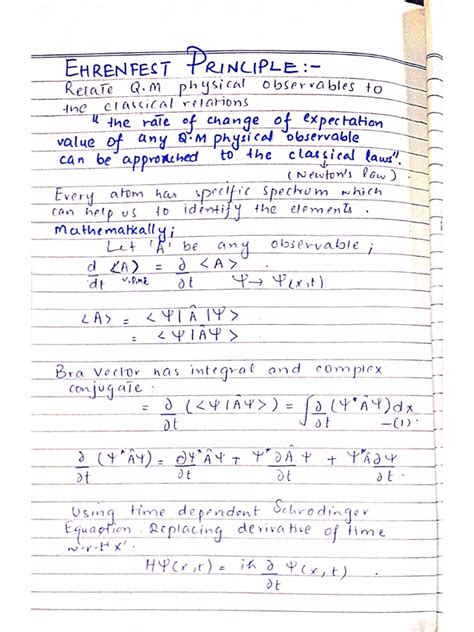 EHRENFEST PRINCIPLE:-
Relate Q.M physical observables to
the classical relations
"the rate of change of expectation
value of any Q.M physical observable
can be approached to the classical laws".
(Newton's law)
Every atom has specific spectrum which
can help us to identify the elements.
Mathematically;
Let 'A' be any observable;
d/dt <A> = ∂/∂t <A>
Ψ → Ψ(x,t)
<A> = <Ψ|Â|Ψ>
= <Ψ|ÂΨ>
Bra vector has integral and complex
conjugate:
= ∂/∂t (<Ψ|ÂΨ>) = ∫∂/∂t (Ψ*ÂΨ)dx —(1).
∂/∂t (Ψ*ÂΨ) = ∂Ψ*/∂t ÂΨ + Ψ*∂Â/∂t Ψ + Ψ*Â∂Ψ/∂t
Using time dependent Schrodinger
Equation. Replacing derivative of time
w.r.t 'x'.
HΨ(x,t) = iħ ∂/∂t Ψ(x,t).